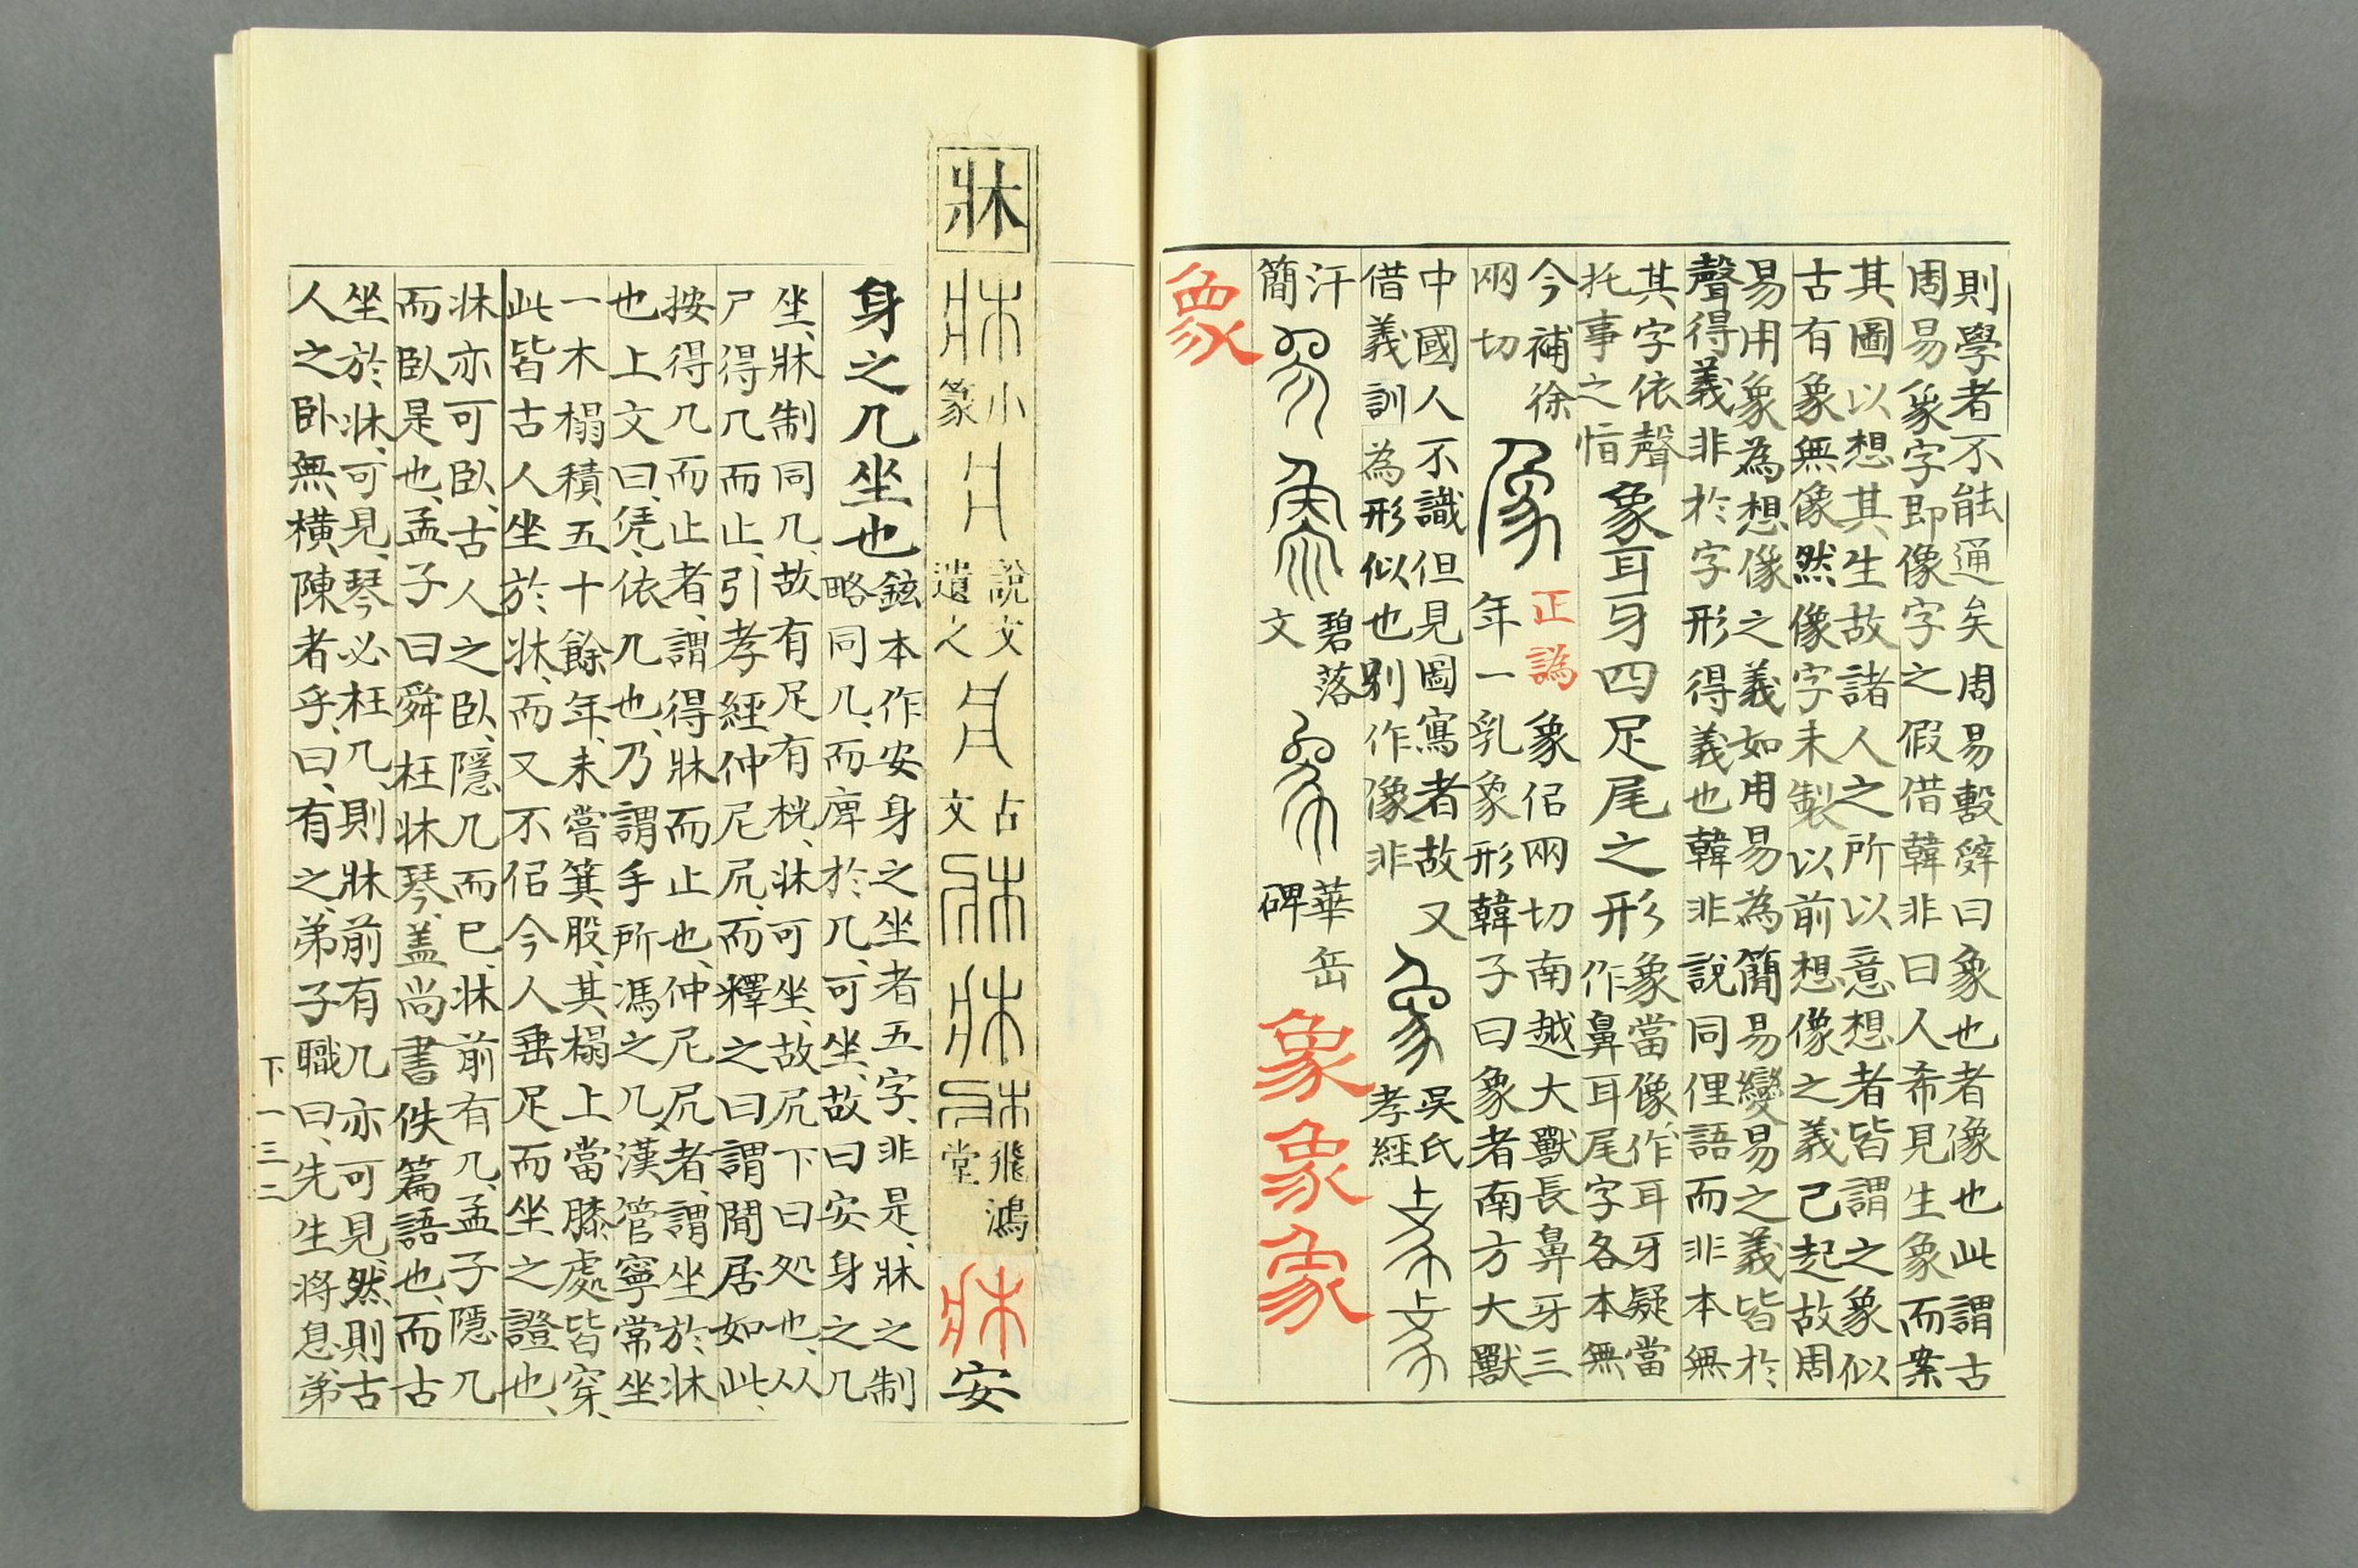 則學者不能通矣周易繫辝曰象也者像也此謂古
周易象字即像字之假借韓非曰人希見生象而案
其圖以想其生故諸人之所以意想者皆謂之象似
古有象無像然像字未製以前想像之義己起故周
易用象為想像之義如用易為簡易變易之義皆於
聲得義非於字形得義也韓非說同俚語而非本無
其字依聲
托事之恉
象耳牙四足尾之形
象當像作耳牙疑當
作鼻耳尾字各本無
今補徐
兩切
正譌
象侣兩切南越大獸長鼻牙三
年一乳象形韓子曰象者南方大獸
中國人不識但見圖寫者故又
借義訓為形似也别作像非
吳氏
孝經
汗
簡
碧落
文
華岳
碑
象象象
象
牀
牀
小
篆
說文
遺之
古
文
牀
牀
飛鴻
堂
牀安
身之几坐也
鉉本作安身之坐者五字、非是、牀之制
略同几、而庳於几、可坐、故曰安身之几
坐、牀制同几、故有足有桄、牀可坐、故凥下曰処也、从
尸得几而止、引孝經仲尼凥、而釋之曰謂閒居如此、
按得几而止者、謂得牀而止也、仲尼凥者、謂坐於牀
也上文曰、凭、依几也、乃謂手所馮之几、漢管寧常坐
一木榻積五十餘年、未嘗箕股、其榻上當膝處皆穿、
此皆古人坐於牀、而又不侣今人垂足而坐之證也、
牀亦可臥、古人之臥、隱几而已、牀前有几、孟子隱几
而臥是也、孟子曰舜在牀琴、蓋尚書佚篇語也、而古
坐於牀、可見、琴必在几、則牀前有几亦可見、然則古
人之卧無橫陳者乎、曰、有之、弟子職曰、先生將息、弟
下一三二